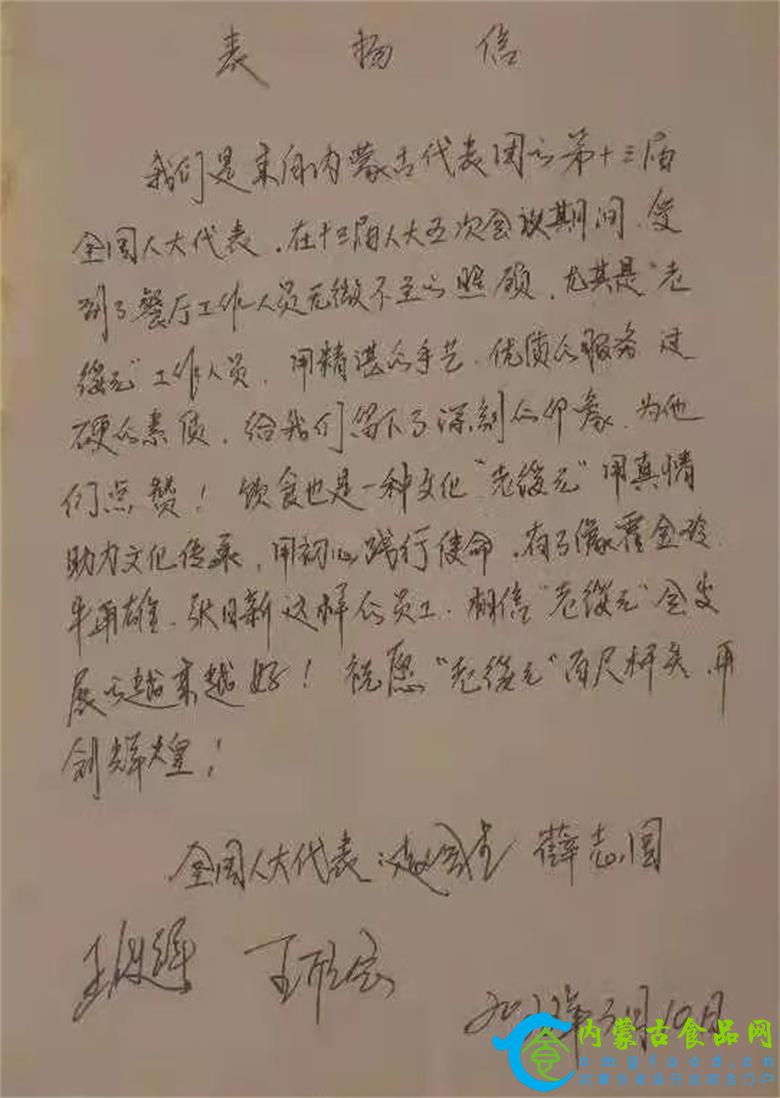 表扬信
我们是来自内蒙古代表团的第十三届
全国人大代表，在十三届人大五次会议期间，受
到了餐厅工作人员无微不至的照顾，尤其是“老
绥元”工作人员，用精湛的手艺、优质的服务、过
硬的素质，给我们留下了深刻的印象，为他
们点赞！饮食也是一种文化“老绥元”用真情
助力文化传承，用初心践行使命，有了像霍金玲、
牛再雄、张日新这样的员工，相信“老绥元”会发
展的越来越好！祝愿“老绥元”百尺杆头，再
创辉煌！
全国人大代表：薛志国
王欣会
2022年3月10日
内蒙古食品网
nmgfood.cn